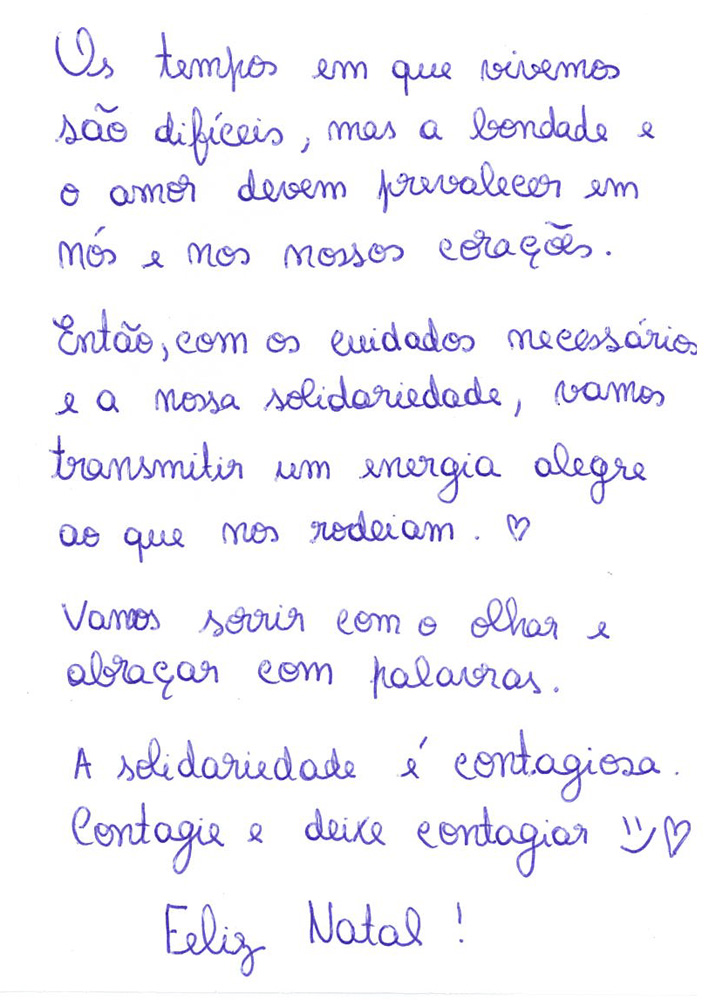 Os tempos em que vivemos
são difíceis, mas a bondade e
o amor devem prevalecer em
nós e nos nossos corações.
Então, com os cuidados necessários
e a nossa solidariedade, vamos
transmitir um energia alegre
ao que nos rodeiam. ♡
Vamos sorrir com o olhar e
abraçar com palavras.
A solidariedade é contagiosa.
Contagie e deixe contagiar :) ♡
Feliz Natal!